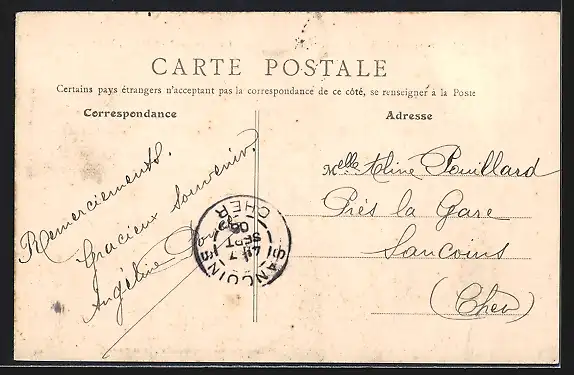 CARTE POSTALE
Certains pays étrangers n'acceptant pas la correspondance de ce côté, se renseigner à la Poste
Correspondance
Adresse
Remerciements.
Gracieux Souvenir.
Angéline
Melle Aline Pouillard
Près la Gare
Sancoins
(Cher)
SANCOINS
7
SEPT
05
CHER